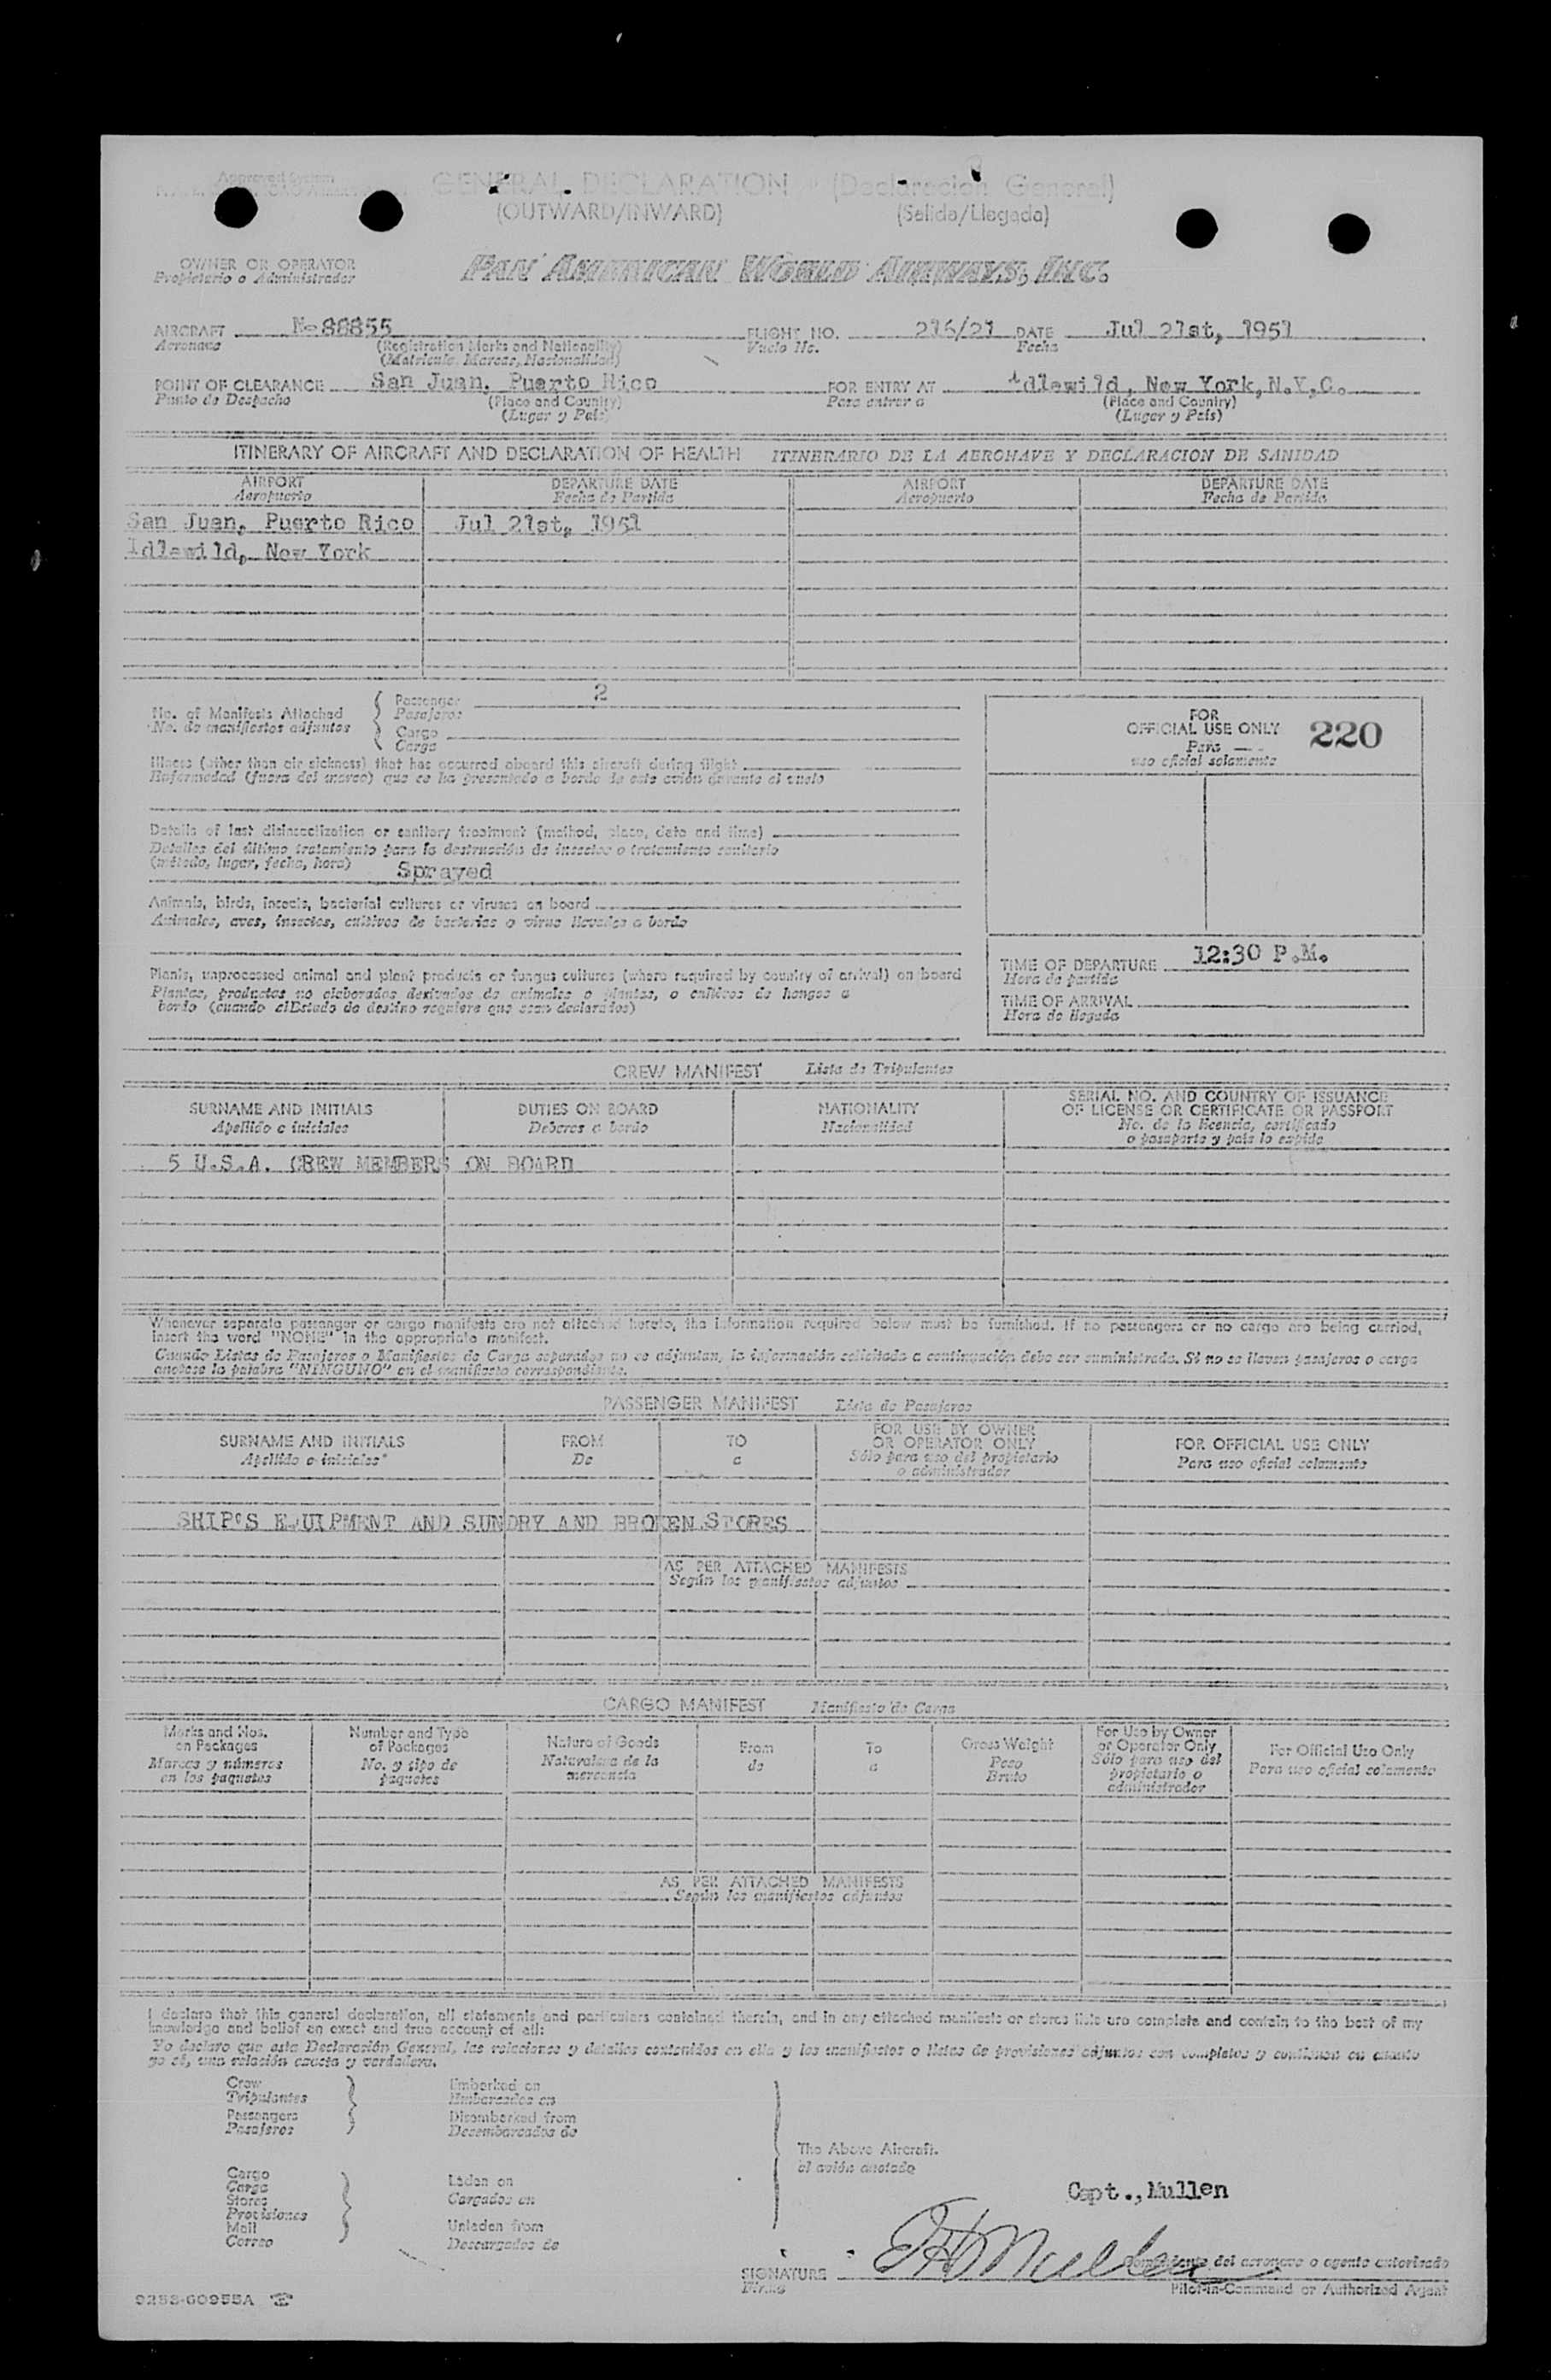 Approved System
GENERAL DECLARATION (Declaracion General)
(OUTWARD/INWARD) (Salida/Llegada)
OWNER OR OPERATOR PAN AMERICAN WORLD AIRWAYS, INC.
Propietario o Administrador
AIRCRAFT N-88855 FLIGHT NO. 216/21 DATE Jul 21st, 1951
Aeronave (Registration Marks and Nationality) Vuelo No. Fecha
(Matricula, Marcas, Nacionalidad)
POINT OF CLEARANCE San Juan, Puerto Rico FOR ENTRY AT Idlewild, New York, N.Y,C.
Punto de Despacho (Place and Country) Para entrar a (Place and Country)
(Lugar y Pais) (Lugar y Pais)
ITINERARY OF AIRCRAFT AND DECLARATION OF HEALTH ITINERARIO DE LA AERONAVE Y DECLARACION DE SANIDAD
AIRPORT DEPARTURE DATE AIRPORT DEPARTURE DATE
Aeropuerto Fecha de Partida Aeropuerto Fecha de Partida
San Juan, Puerto Rico Jul 21st, 1951
Idlewild, New York
No. of Manifests Attached Passenger 2
No. de manifiestos adjuntos Pasajeros
Cargo
Carga
FOR
OFFICIAL USE ONLY 220
Para
uso oficial solamente
Illness (other than air sickness) that has occurred aboard this aircraft during flight
Enfermedad (fuera del mareo) que se ha presentado a bordo de este avión durante el vuelo
Details of last disinsectization or sanitary treatment (method, place, date and time)
Detalles del último tratamiento para la destrucción de insectos o tratamiento sanitario
(método, lugar, fecha, hora) Sprayed
Animals, birds, insects, bacterial cultures or viruses on board
Animales, aves, insectos, cultivos de bacterias o virus llevados a bordo
Plants, unprocessed animal and plant products or fungus cultures (where required by country of arrival) on board
Plantas, productos no elaborados derivados de animales o plantas, o cultivos de hongos a
bordo (cuando el Estado de destino requiera que sean declarados)
TIME OF DEPARTURE 12:30 P.M.
Hora de partida
TIME OF ARRIVAL
Hora de llegada
CREW MANIFEST Lista de Tripulantes
SURNAME AND INITIALS DUTIES ON BOARD NATIONALITY SERIAL NO. AND COUNTRY OF ISSUANCE
OF LICENSE OR CERTIFICATE OR PASSPORT
Apellido e iniciales Deberes a bordo Nacionalidad No. de la licencia, certificado
o pasaporte y pais lo expide
5 U.S.A. CREW MEMBERS ON BOARD
Whenever separate passenger or cargo manifests are not attached hereto, the information required below must be furnished. If no passengers or no cargo are being carried,
insert the word "NONE" in the appropriate manifest.
Cuando Listas de Pasajeros o Manifiestos de Carga separados no se adjuntan, la información solicitada a continuación debe ser suministrada. Si no se llevan pasajeros o carga
anótese la palabra "NINGUNO" en el manifiesto correspondiente.
PASSENGER MANIFEST Lista de Pasajeros
SURNAME AND INITIALS FROM TO FOR USE BY OWNER
OR OPERATOR ONLY FOR OFFICIAL USE ONLY
Apellido e iniciales De a Sólo para uso del propietario
o administrador Para uso oficial solamente
SHIP'S EQUIPMENT AND SUNDRY AND BROKEN STORES
AS PER ATTACHED MANIFESTS
Según los manifiestos adjuntos
CARGO MANIFEST Manifiesto de Carga
Marks and Nos.
on Packages
Marcas y números
en los paquetes
Number and Type
of Packages
No. y tipo de
paquetes
Nature of Goods
Naturaleza de la
mercancia
From
de
To
a
Gross Weight
Peso
Bruto
For Use by Owner
or Operator Only
Sólo para uso del
propietario o
administrador
For Official Use Only
Para uso oficial solamente
AS PER ATTACHED MANIFESTS
Según los manifiestos adjuntos
I declare that this general declaration, all statements and particulars contained therein, and in any attached manifests or stores lists are complete and contain to the best of my
knowledge and belief an exact and true account of all:
Yo declaro que esta Declaración General, las relaciones y detalles contenidos en ella y los manifiestos o listas de provisiones adjuntos son completos y contienen en cuanto
yo sé, una relación exacta y verdadera.
Crew Embarked on
Tripulantes Embarcados en
Passengers Disembarked from
Pasajeros Desembarcados de
The Above Aircraft.
el avión anotado
Cargo
Carga Laden on
Stores Cargados en
Provisiones
Mail Unladen from
Correo Descargados de
Capt., Mullen
SIGNATURE Mullen
Firma
del aeronave o agente autorizado
Pilot-in-Command or Authorized Agent